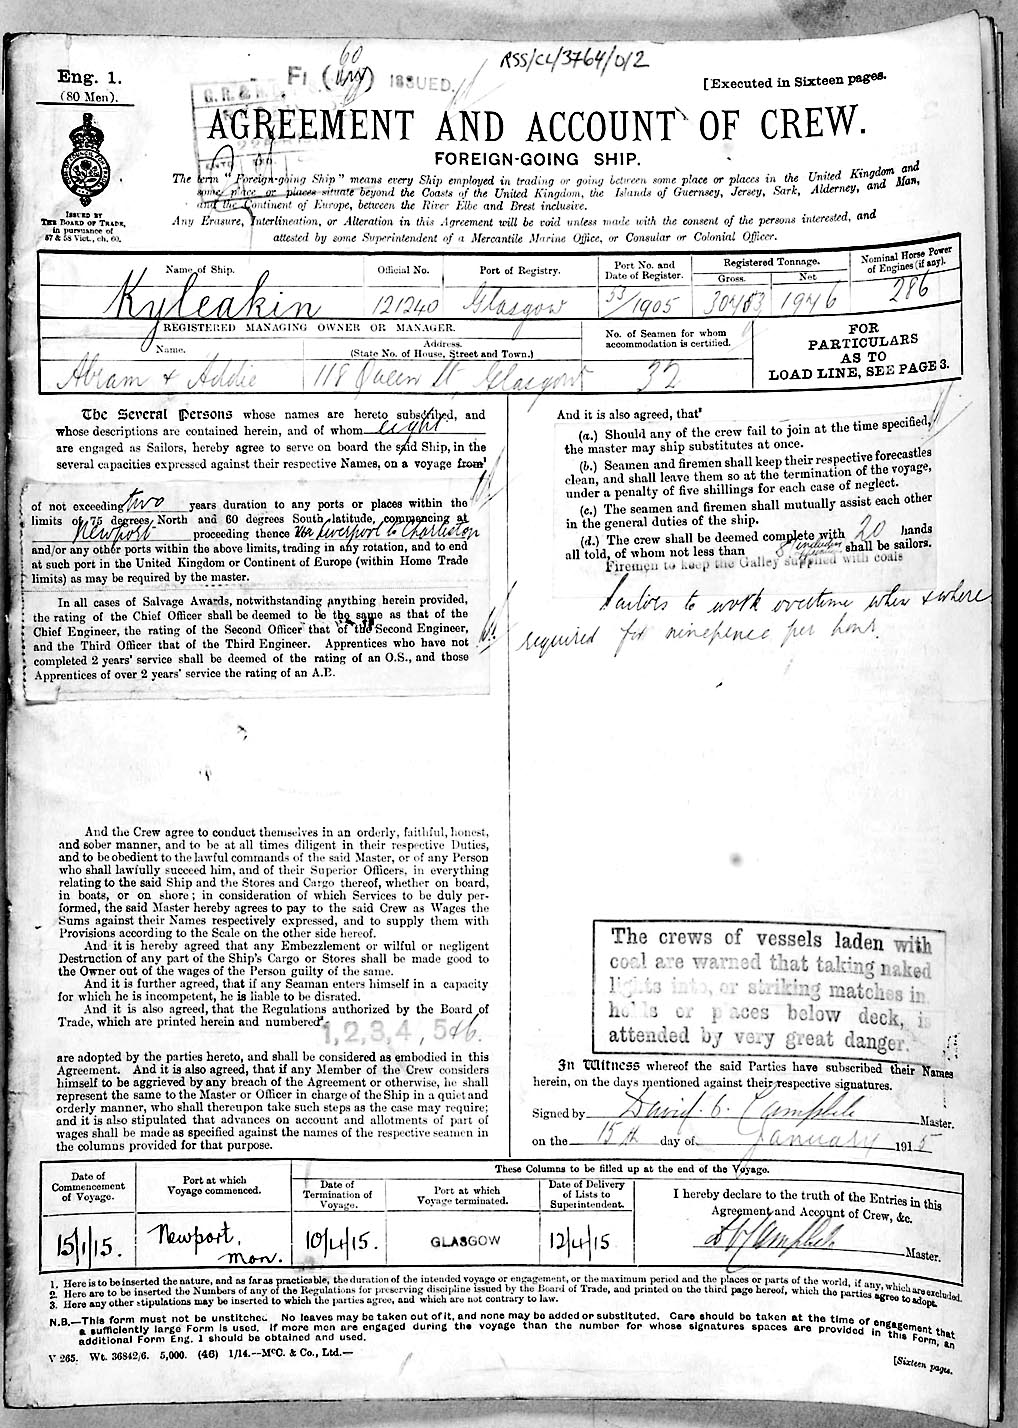 RSS/CL/3764/0/2
60
Eng. 1.
(80 Men).
ISSUED.
[Executed in Sixteen pages.
AGREEMENT AND ACCOUNT OF CREW.
FOREIGN-GOING SHIP.
ISSUED BY
THE BOARD OF TRADE,
in pursuance of
57 & 58 Vict., ch. 60.
The term "Foreign-going Ship" means every Ship employed in trading or going between some place or places in the United Kingdom and
some place or places situate beyond the Coasts of the United Kingdom, the Islands of Guernsey, Jersey, Sark, Alderney, and Man,
and the Continent of Europe, between the River Elbe and Brest inclusive.
Any Erasure, Interlineation, or Alteration in this Agreement will be void unless made with the consent of the persons interested, and
attested by some Superintendent of a Mercantile Marine Office, or Consular or Colonial Officer.
Name of Ship. Official No. Port of Registry. Port No. and Date of Register. Registered Tonnage. Gross. Net Nominal Horse Power of Engines (if any).
Kyleakin 121240 Glasgow 53/1905 1946 286
REGISTERED MANAGING OWNER OR MANAGER.
Name. Address. (State No. of House, Street and Town.)
No. of Seamen for whom accommodation is certified.
Abram & Addie 118 Queen St, Glasgow 32
FOR
PARTICULARS
AS TO
LOAD LINE, SEE PAGE 3.
The Several Persons whose names are hereto subscribed, and
whose descriptions are contained herein, and of whom eight
are engaged as Sailors, hereby agree to serve on board the said Ship, in the
several capacities expressed against their respective Names, on a voyage from¹
of not exceeding two years duration to any ports or places within the
limits of 75 degrees North and 60 degrees South latitude, commencing at
Newport proceeding thence via Liverpool to Charleston
and/or any other ports within the above limits, trading in any rotation, and to end
at such port in the United Kingdom or Continent of Europe (within Home Trade
limits) as may be required by the master.
In all cases of Salvage Awards, notwithstanding anything herein provided,
the rating of the Chief Officer shall be deemed to be the same as that of the
Chief Engineer, the rating of the Second Officer that of the Second Engineer,
and the Third Officer that of the Third Engineer. Apprentices who have not
completed 2 years' service shall be deemed of the rating of an O.S., and those
Apprentices of over 2 years' service the rating of an A.B.
And the Crew agree to conduct themselves in an orderly, faithful, honest,
and sober manner, and to be at all times diligent in their respective Duties,
and to be obedient to the lawful commands of the said Master, or of any Person
who shall lawfully succeed him, and of their Superior Officers, in everything
relating to the said Ship and the Stores and Cargo thereof, whether on board,
in boats, or on shore; in consideration of which Services to be duly per-
formed, the said Master hereby agrees to pay to the said Crew as Wages the
Sums against their Names respectively expressed, and to supply them with
Provisions according to the Scale on the other side hereof.
And it is hereby agreed that any Embezzlement or wilful or negligent
Destruction of any part of the Ship's Cargo or Stores shall be made good to
the Owner out of the wages of the Person guilty of the same.
And it is further agreed, that if any Seaman enters himself in a capacity
for which he is incompetent, he is liable to be disrated.
And it is also agreed, that the Regulations authorized by the Board of
Trade, which are printed herein and numbered² 1, 2, 3, 4, 5 & 6.
are adopted by the parties hereto, and shall be considered as embodied in this
Agreement. And it is also agreed, that if any Member of the Crew considers
himself to be aggrieved by any breach of the Agreement or otherwise, he shall
represent the same to the Master or Officer in charge of the Ship in a quiet and
orderly manner, who shall thereupon take such steps as the case may require;
and it is also stipulated that advances on account and allotments of part of
wages shall be made as specified against the names of the respective seamen in
the columns provided for that purpose.
And it is also agreed, that³
(a.) Should any of the crew fail to join at the time specified,
the master may ship substitutes at once.
(b.) Seamen and firemen shall keep their respective forecastles
clean, and shall leave them so at the termination of the voyage,
under a penalty of five shillings for each case of neglect.
(c.) The seamen and firemen shall mutually assist each other
in the general duties of the ship.
(d.) The crew shall be deemed complete with 20 hands
all told, of whom not less than 8 shall be sailors.
Firemen to keep the Galley supplied with coals
Sailors to work overtime when & where
required for ninepence per hour.
The crews of vessels laden with
coal are warned that taking naked
lights into, or striking matches in
holds or places below deck, is
attended by very great danger.
In Witness whereof the said Parties have subscribed their Names
herein, on the days mentioned against their respective signatures.
Signed by David C. Campbell Master.
on the 15th day of January 1915
Date of Commencement of Voyage. Port at which Voyage commenced. These Columns to be filled up at the end of the Voyage.
Date of Termination of Voyage. Port at which Voyage terminated. Date of Delivery of Lists to Superintendent.
I hereby declare to the truth of the Entries in this
Agreement and Account of Crew, &c.
15/1/15. Newport, Mon. 10/4/15. GLASGOW 12/4/15 D C Campbell Master.
1. Here is to be inserted the nature, and as far as practicable, the duration of the intended voyage or engagement, or the maximum period and the places or parts of the world, if any, which are excluded.
2. Here are to be inserted the Numbers of any of the Regulations for preserving discipline issued by the Board of Trade, and printed on the third page hereof, which the parties agree to adopt.
3. Here any other stipulations may be inserted to which the parties agree, and which are not contrary to law.
N.B.—This form must not be unstitched. No leaves may be taken out of it, and none may be added or substituted. Care should be taken at the time of engagement that
a sufficiently large Form is used. If more men are engaged during the voyage than the number for whose signatures spaces are provided in this Form, an
additional Form Eng. 1 should be obtained and used.
V 265. Wt. 36842/6. 5,000. (46) 1/14.—McC. & Co., Ltd.—
[Sixteen pages.